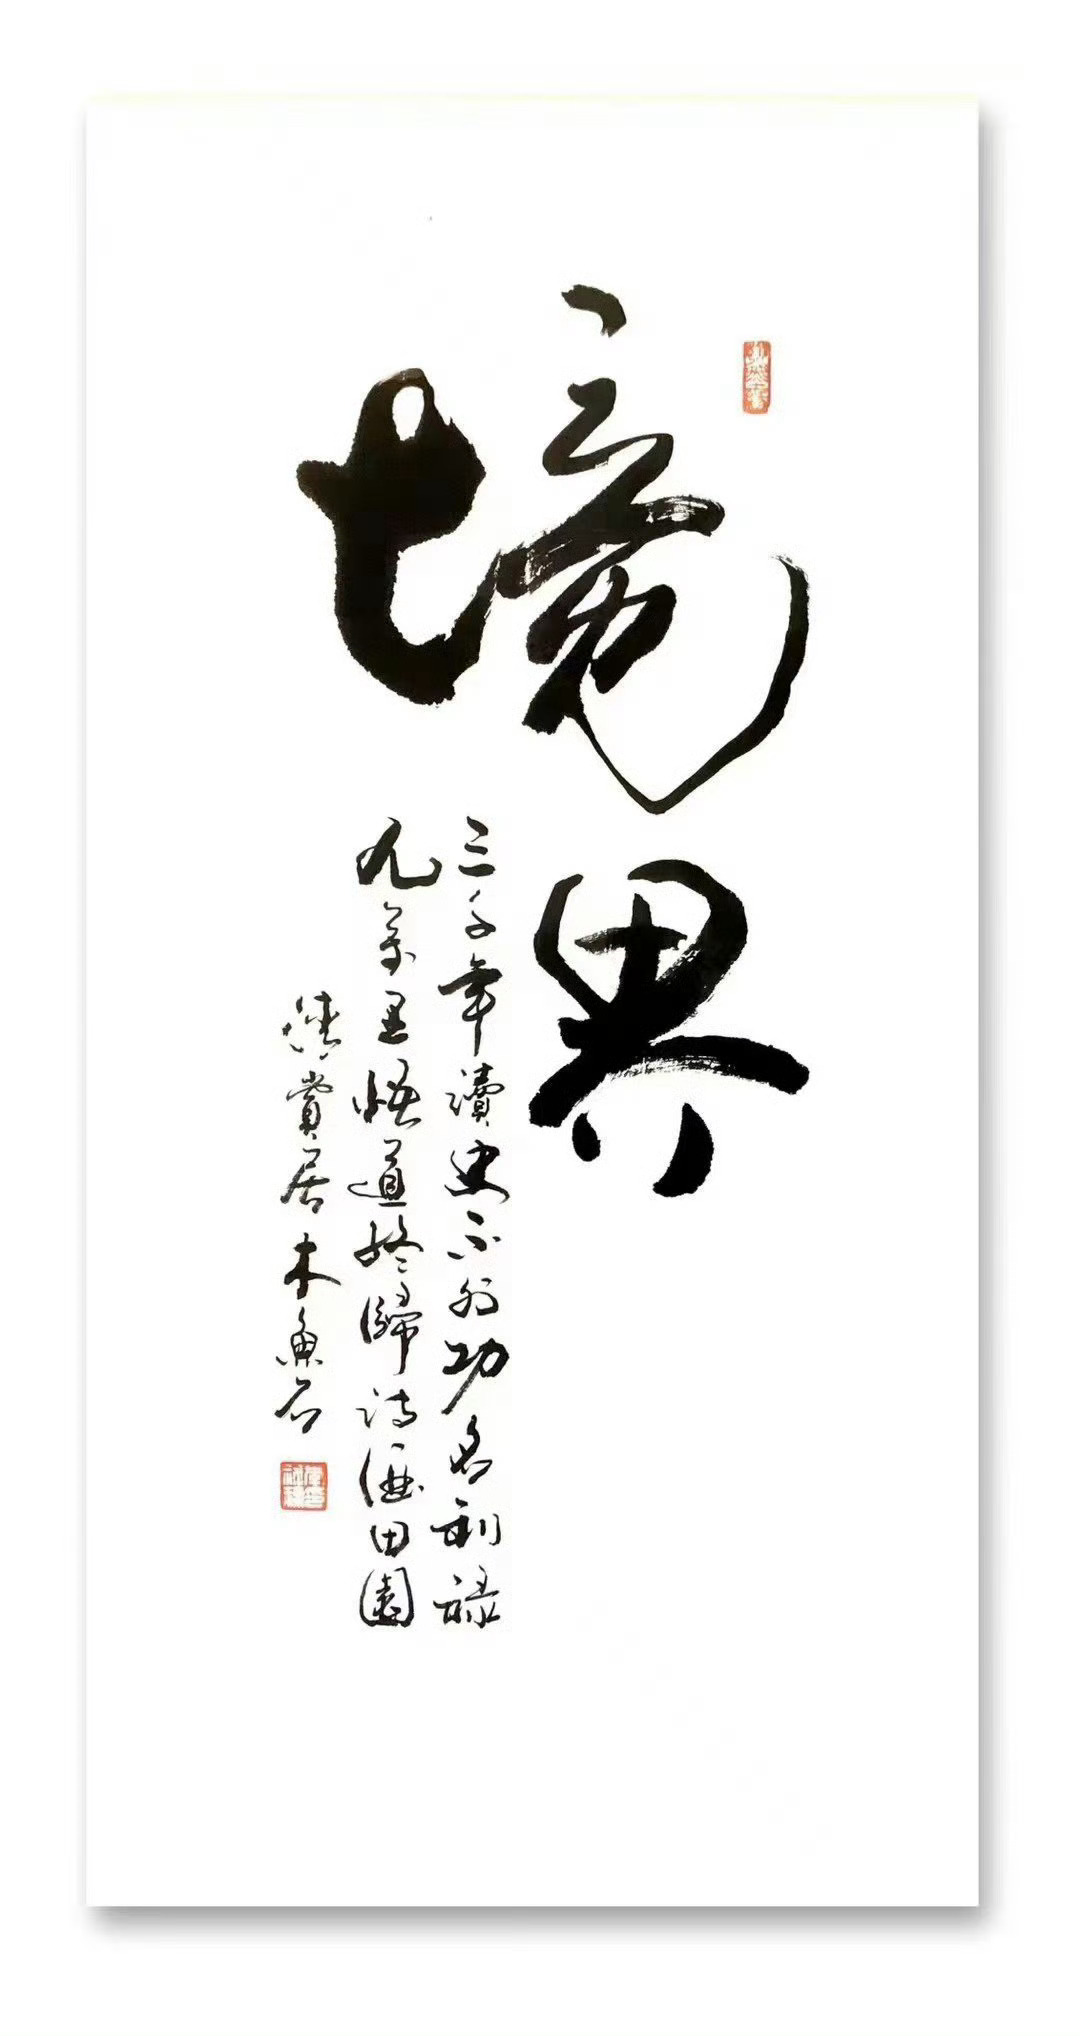 境界
三千年讀史不外功名利祿
九萬里悟道終歸詩酒田園
賞居木魚石